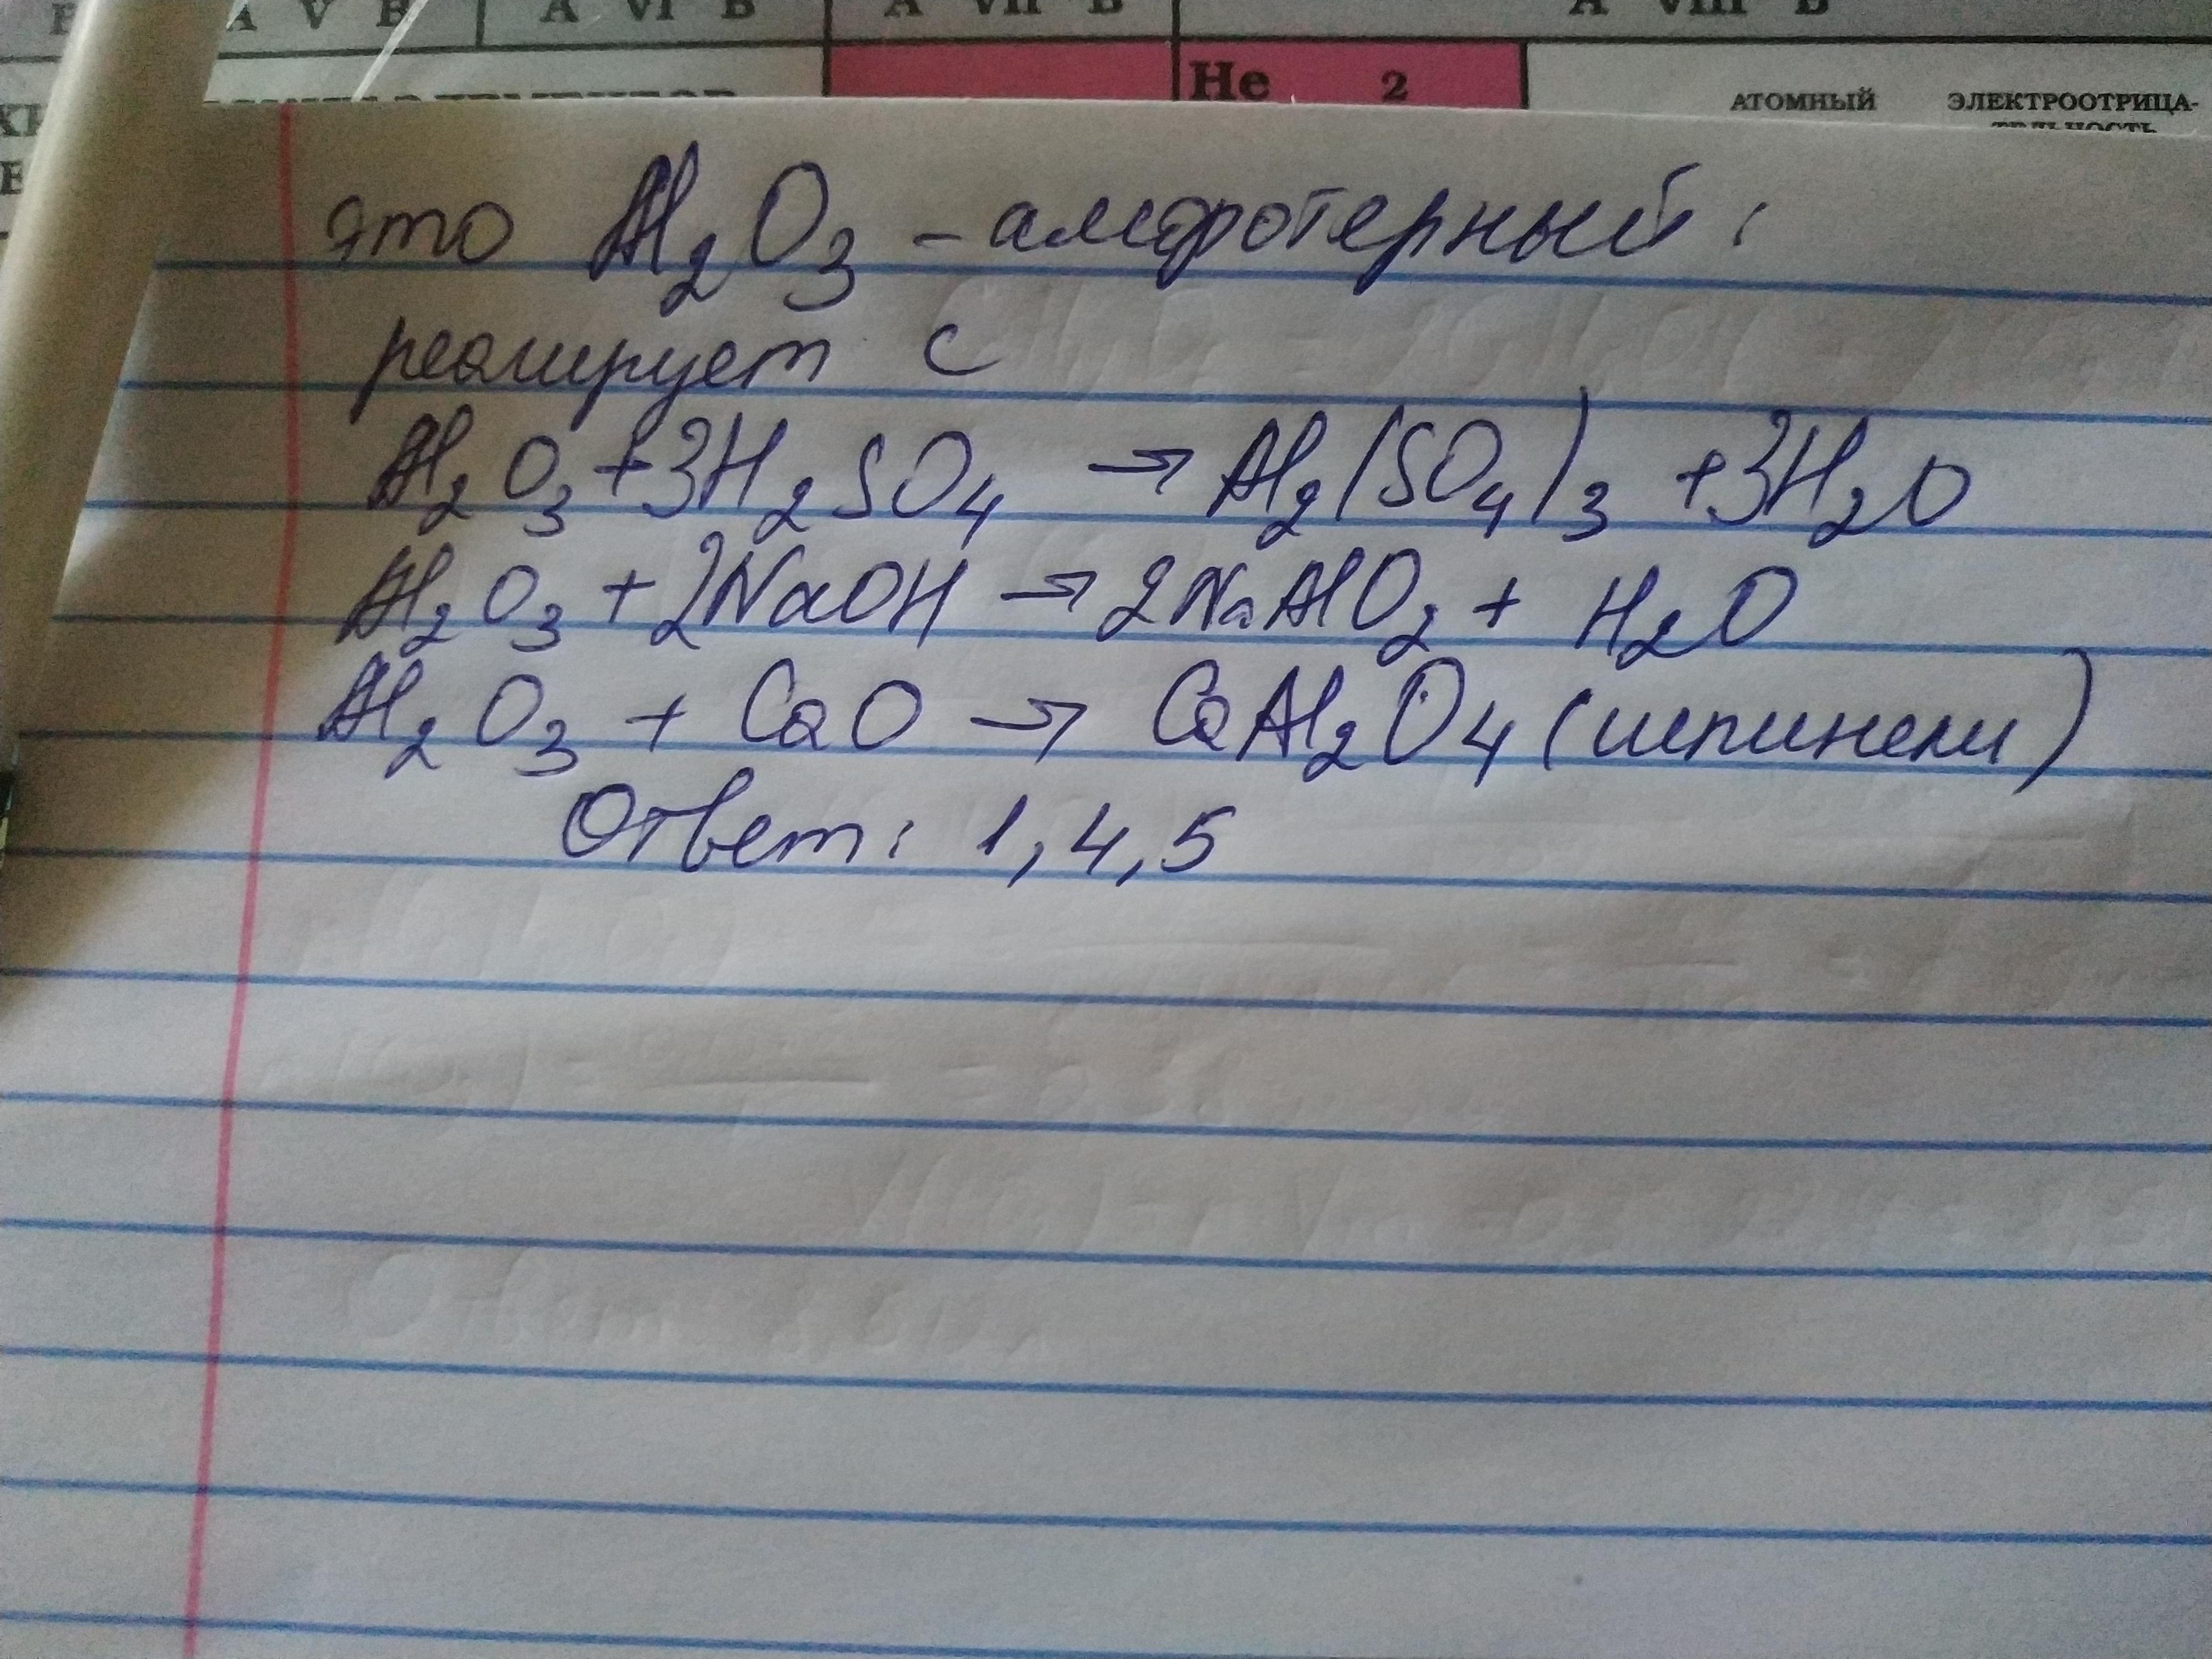 А V В А VI В А VII В А VIII В
He 2
АТОМНЫЙ ЭЛЕКТРООТРИЦА-
ТЕЛЬНОСТЬ
это Al₂O₃ – амфотерный:
реагирует с
Al₂O₃ + 3H₂SO₄ → Al₂(SO₄)₃ + 3H₂O
Al₂O₃ + 2NaOH → 2NaAlO₂ + H₂O
Al₂O₃ + CaO → CaAl₂O₄ (шпинели)
Ответ: 1,4,5